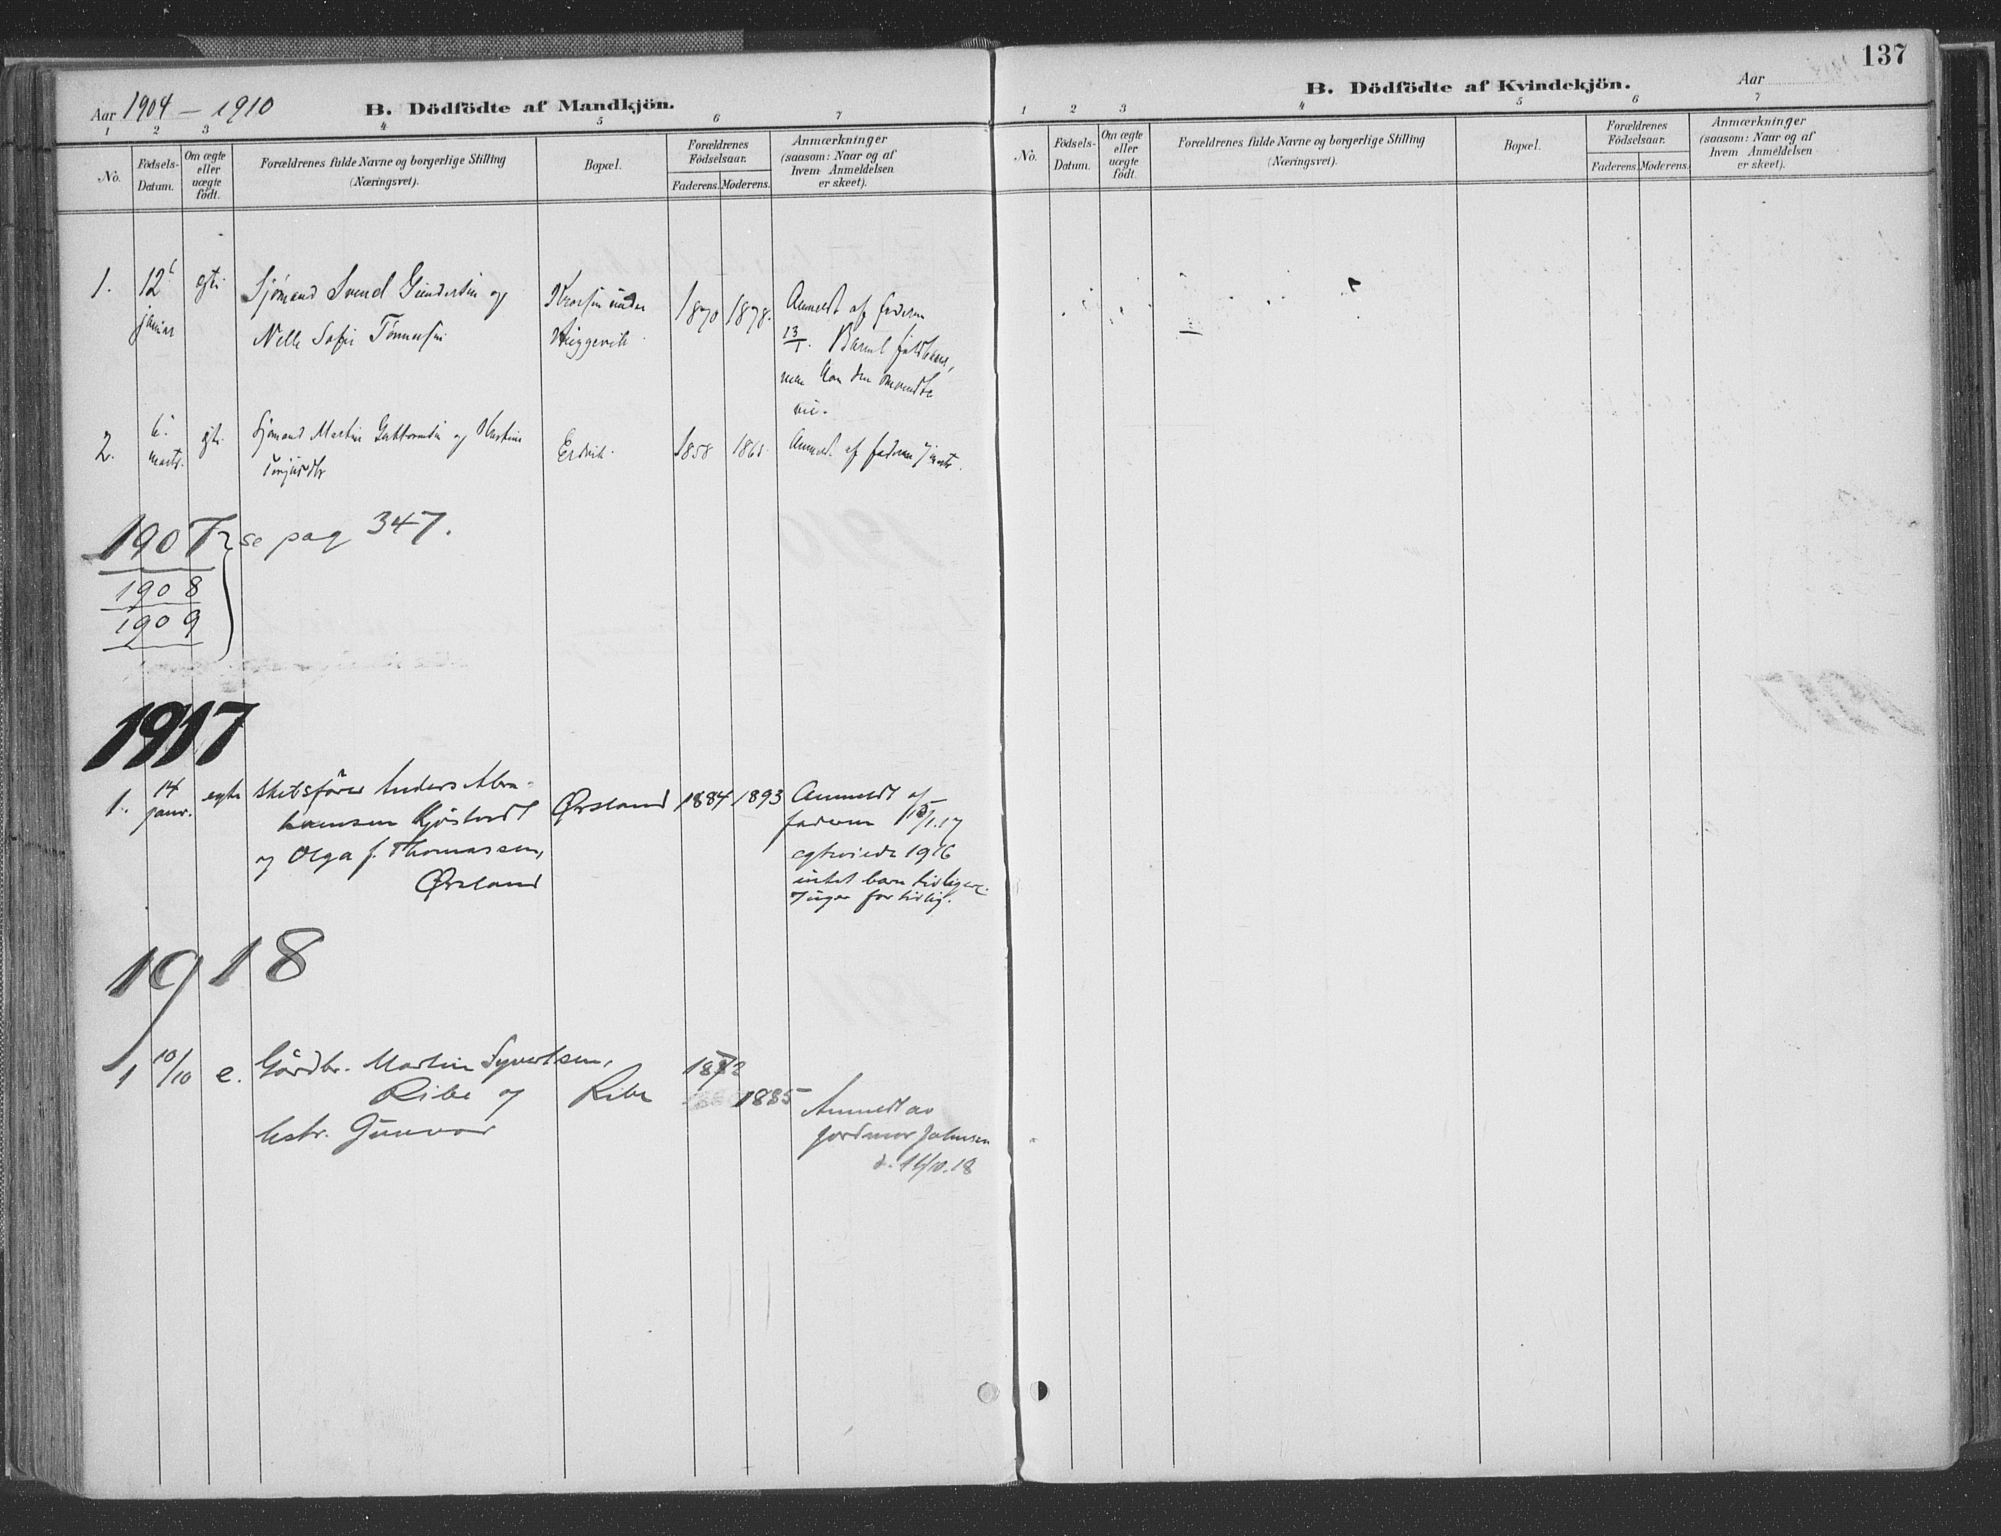 137
Aar 1904 - 1910
B. Dödfödte af Mandkjön.
1 2 3 4 5 6 7
No.
Födsels-
Datum.
Om ægte
eller
uægte
födt.
Forældrenes fulde Navne og borgerlige Stilling
(Næringsvei).
Bopæl.
Forældrenes
Födselsaar.
Faderens. Moderens.
Anmærkninger
(saasom: Naar og af
hvem Anmeldelsen
er skeet).
1. 12 januar
Sjömand Svend Gundersen og
1870 1878.
Anmeldt af faderen
13/1.
2. 6. marts
Sjömand Martin og
1858
Anmeldt af faderen 7 marts.
1907 se pag 347.
1908
1909
1917
1. 14 janr. egte
Anders Abra-
hamsen
og Olga J. Thomassen,
Øvsland
Øvsland 1884 1893
Anmeldt af
faderen 15/1.17
egteviede 1916
intet barn tidligere.
7 uger for tidlig.
1918
1 10/10 e.
Gårdbr. Martin Syvertsen,
Ribe og
hstr. Gunvor
Ribe
1885
Anmeldt av
jordmor Johnsen
B. Dödfödte af Kvindekjön.
Aar
1 2 3 4 5 6 7
No.
Födsels-
Datum.
Om ægte
eller
uægte
födt.
Forældrenes fulde Navne og borgerlige Stilling
(Næringsvei).
Bopæl.
Forældrenes
Födselsaar.
Faderens. Moderens.
Anmærkninger
(saasom: Naar og af
hvem Anmeldelsen
er skeet).